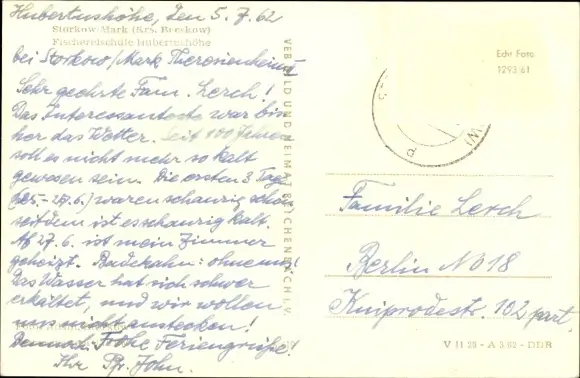 Hubertushöhe, den 5. 7. 62
Storkow/Mark (Krs. Beeskow)
Fischereischule Hubertushöhe
bei Storkow/Mark Theresienheim
Sehr geehrte Fam. Lerch!
Das Interessanteste war bis-
her das Wetter. Seit 100 Jahren
soll es nicht mehr so kalt
gewesen sein. Die ersten 3 Tage
(25.-27.6.) waren schaurig schön
seitdem ist es schaurig kalt.
Ab 27.6. ist mein Zimmer
geheizt. Badekahn: ohne uns!
Das Wasser hat sich schwer
erkältet, und wir wollen
uns nicht anstecken!
Dennoch: Frohe Feriengrüße!
Ihr Pfr. John.
VEB BILD UND HEIMAT REICHENBACH I. V.
Echt Foto
1293/61
Familie Lerch
Berlin NO 18
Kniprodestr. 102 part.
V 11 28 - A 3/62 - DDR